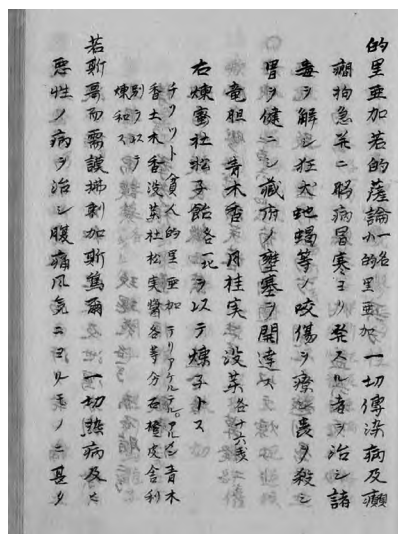 的里亜加若的薩論 一名小的里亜加 一切傳染病及癲
癇拘急并ニ脳病冒寒ヨリ発スル者ヲ治シ諸
毒ヲ解シ狂犬蛇蝎等ノ咬傷ヲ療シ虫ヲ殺シ
胃ヲ健ニシ藏府ノ壅塞ヲ開達ス
竜胆 青木香 月桂実 没薬 各十六戔
右煉蜜杜松子飴各 ヲ以テ煉子トス
チリツト 貧人的里亜加 テリアケルデ 青木
香土木香没薬杜松実 各等分石 皮舎利
別ヲ以テ
煉和ス
若斯哥而需謨拂刺加斯篤爾 一切熱病及ヒ
悪性ノ病ヲ治シ腹痛風気ニヨリモノニ甚タ